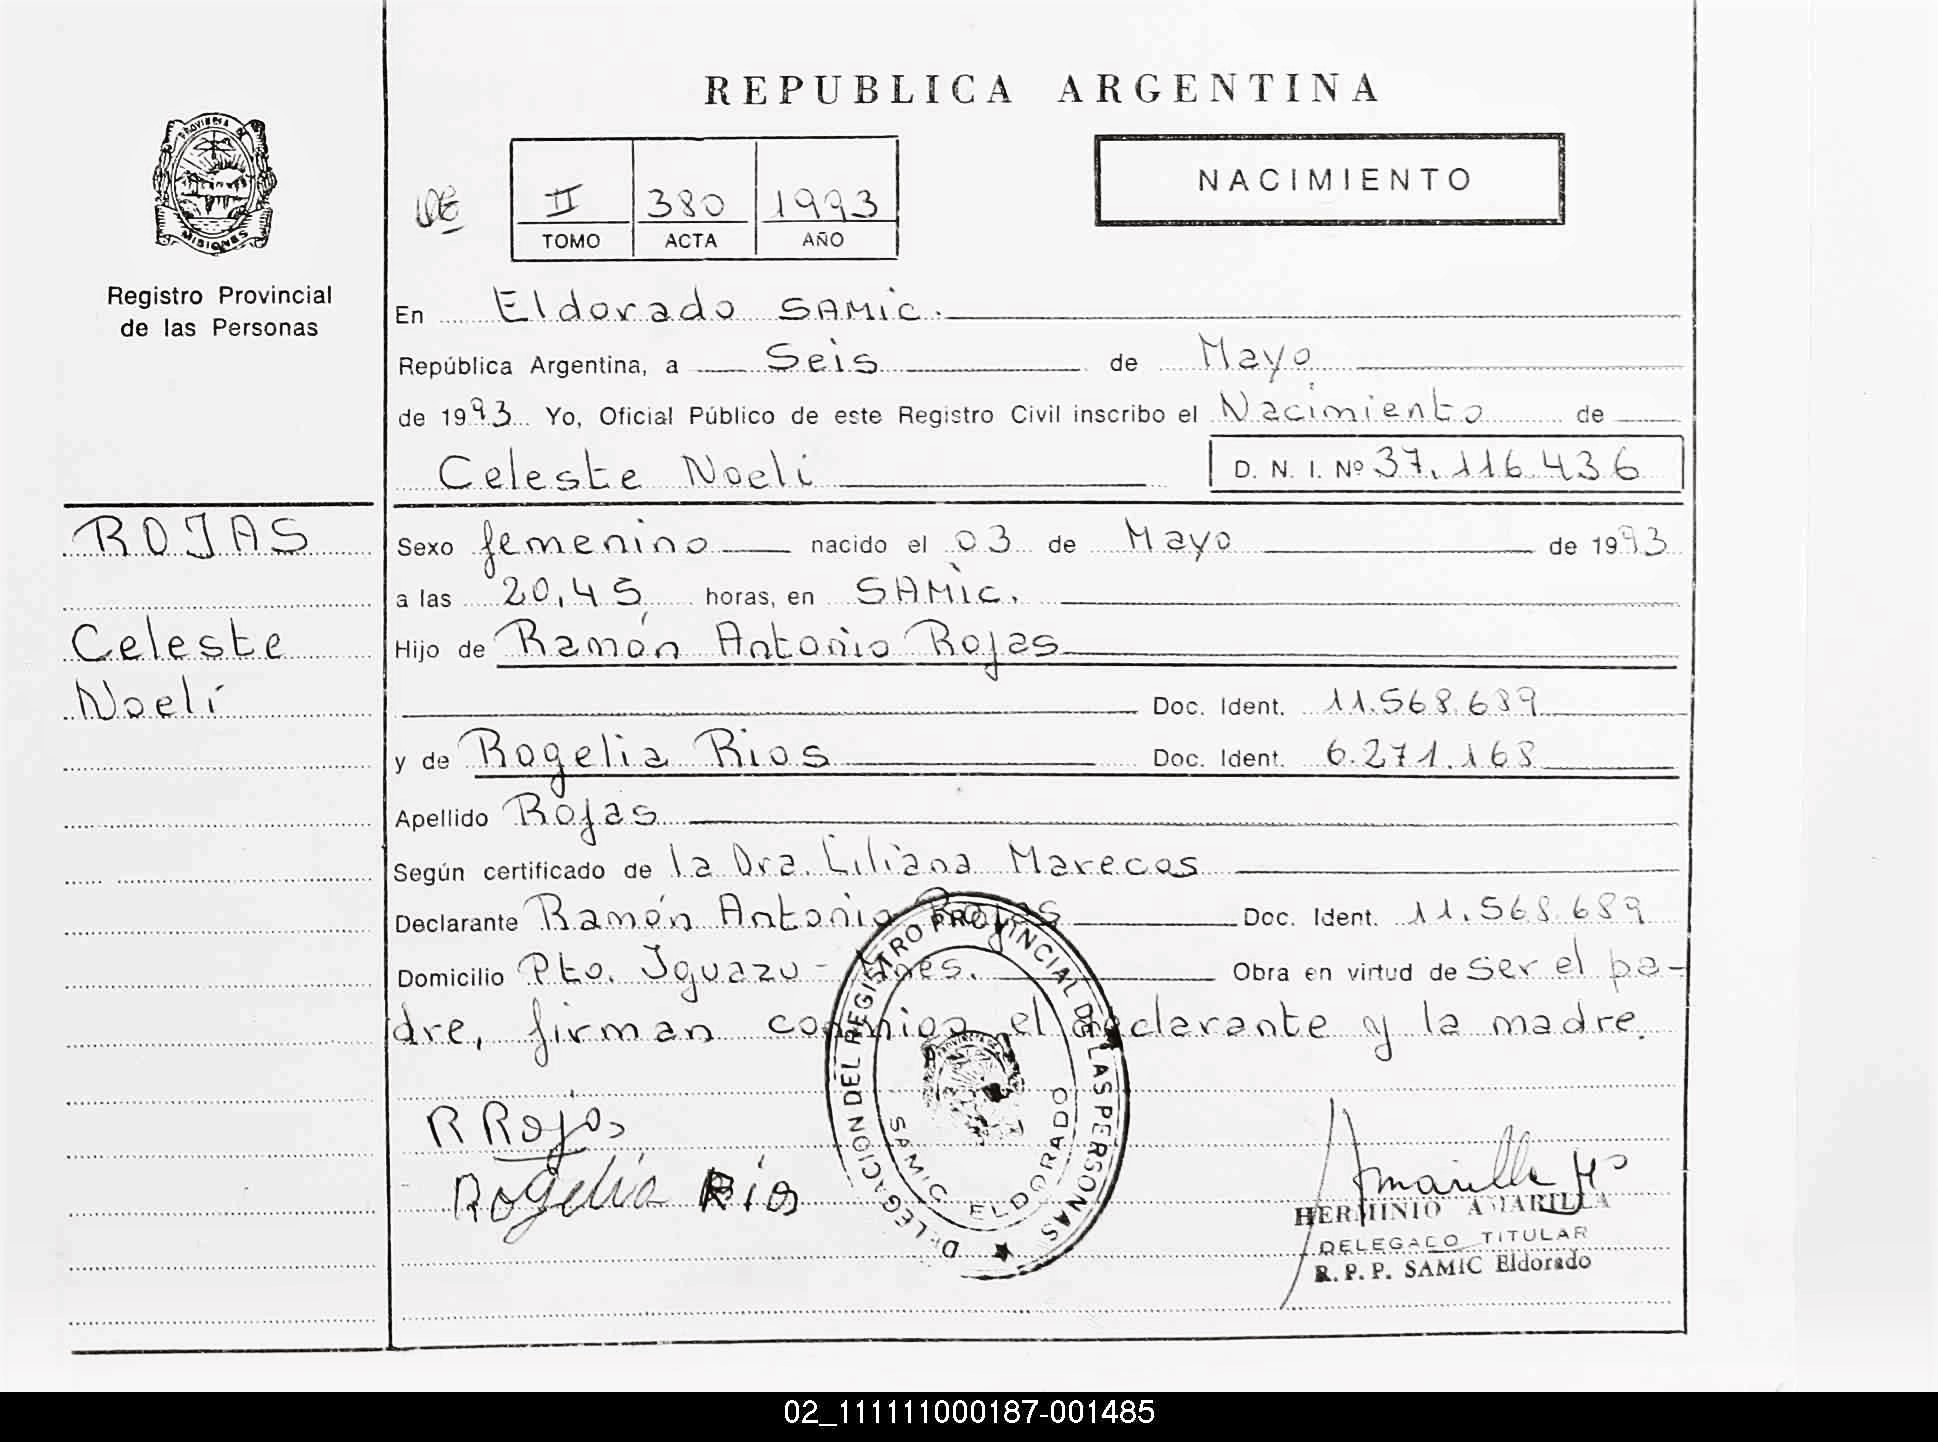 REPUBLICA ARGENTINA
PROVINCIA DE
MISIONES
Registro Provincial
de las Personas
II 380 1993
TOMO ACTA AÑO
NACIMIENTO
En Eldorado SAMic.
República Argentina, a Seis de Mayo
de 1993 Yo, Oficial Público de este Registro Civil inscribo el Nacimiento de
Celeste Noeli D. N. I. Nº 37.116.436
ROJAS
Celeste
Noelí
Sexo femenino nacido el 03 de Mayo de 1993
a las 20,45 horas, en SAMic.
Hijo de Ramón Antonio Rojas
Doc. Ident. 11.568.689
y de Rogelia Rios Doc. Ident. 6.271.168
Apellido Rojas
Según certificado de la Dra. Liliana Marecos
Declarante Ramón Antonio Rojas Doc. Ident. 11.568.689
Domicilio Pto. Iguazu - Mnes. Obra en virtud de ser el pa-
dre, firman conmigo el declarante y la madre.
R Rojas
Rogelia Rios
DELEGACION DEL REGISTRO PROVINCIAL DE LAS PERSONAS
SAMIC ELDORADO
Amarilla
HERMINIO AMARILLA
DELEGADO TITULAR
R. P. P. SAMIC Eldorado
02_111111000187-001485